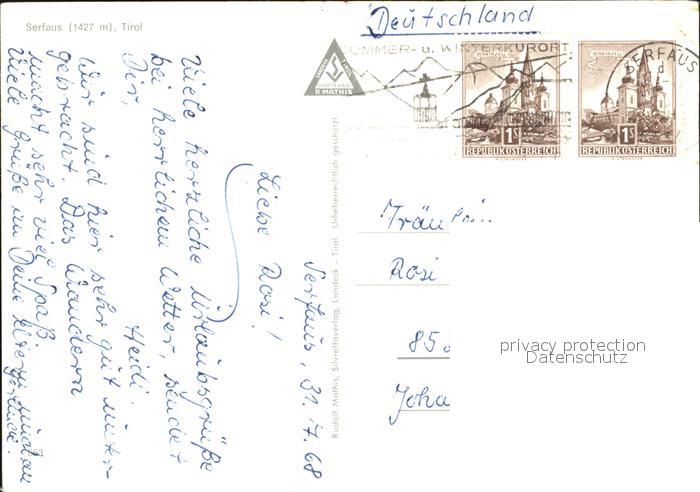 Serfaus (1427 m), Tirol
Serfaus, 31.7.68
Liebe Rosi!
Viele herzliche Urlaubsgrüße
bei herrlichem Wetter, sendet
Dir, Heidi.
Wir sind hier sehr gut unter-
gebracht. Das Wandern
macht sehr viel Spaß.
Viele Grüße an Deine Eltern
R. MATHIS
Rudolf Mathis, Silvrettaverlag, Landeck - Tirol. Urheberrechtlich geschützt
Deutschland
SOMMER- u. WINTERKURORT
SERFAUS
MARIAZELL
1S
REPUBLIK ÖSTERREICH
MARIAZELL
1S
REPUBLIK ÖSTERREICH
Fräulein
Rosi
85
Joha
privacy protection
Datenschutz